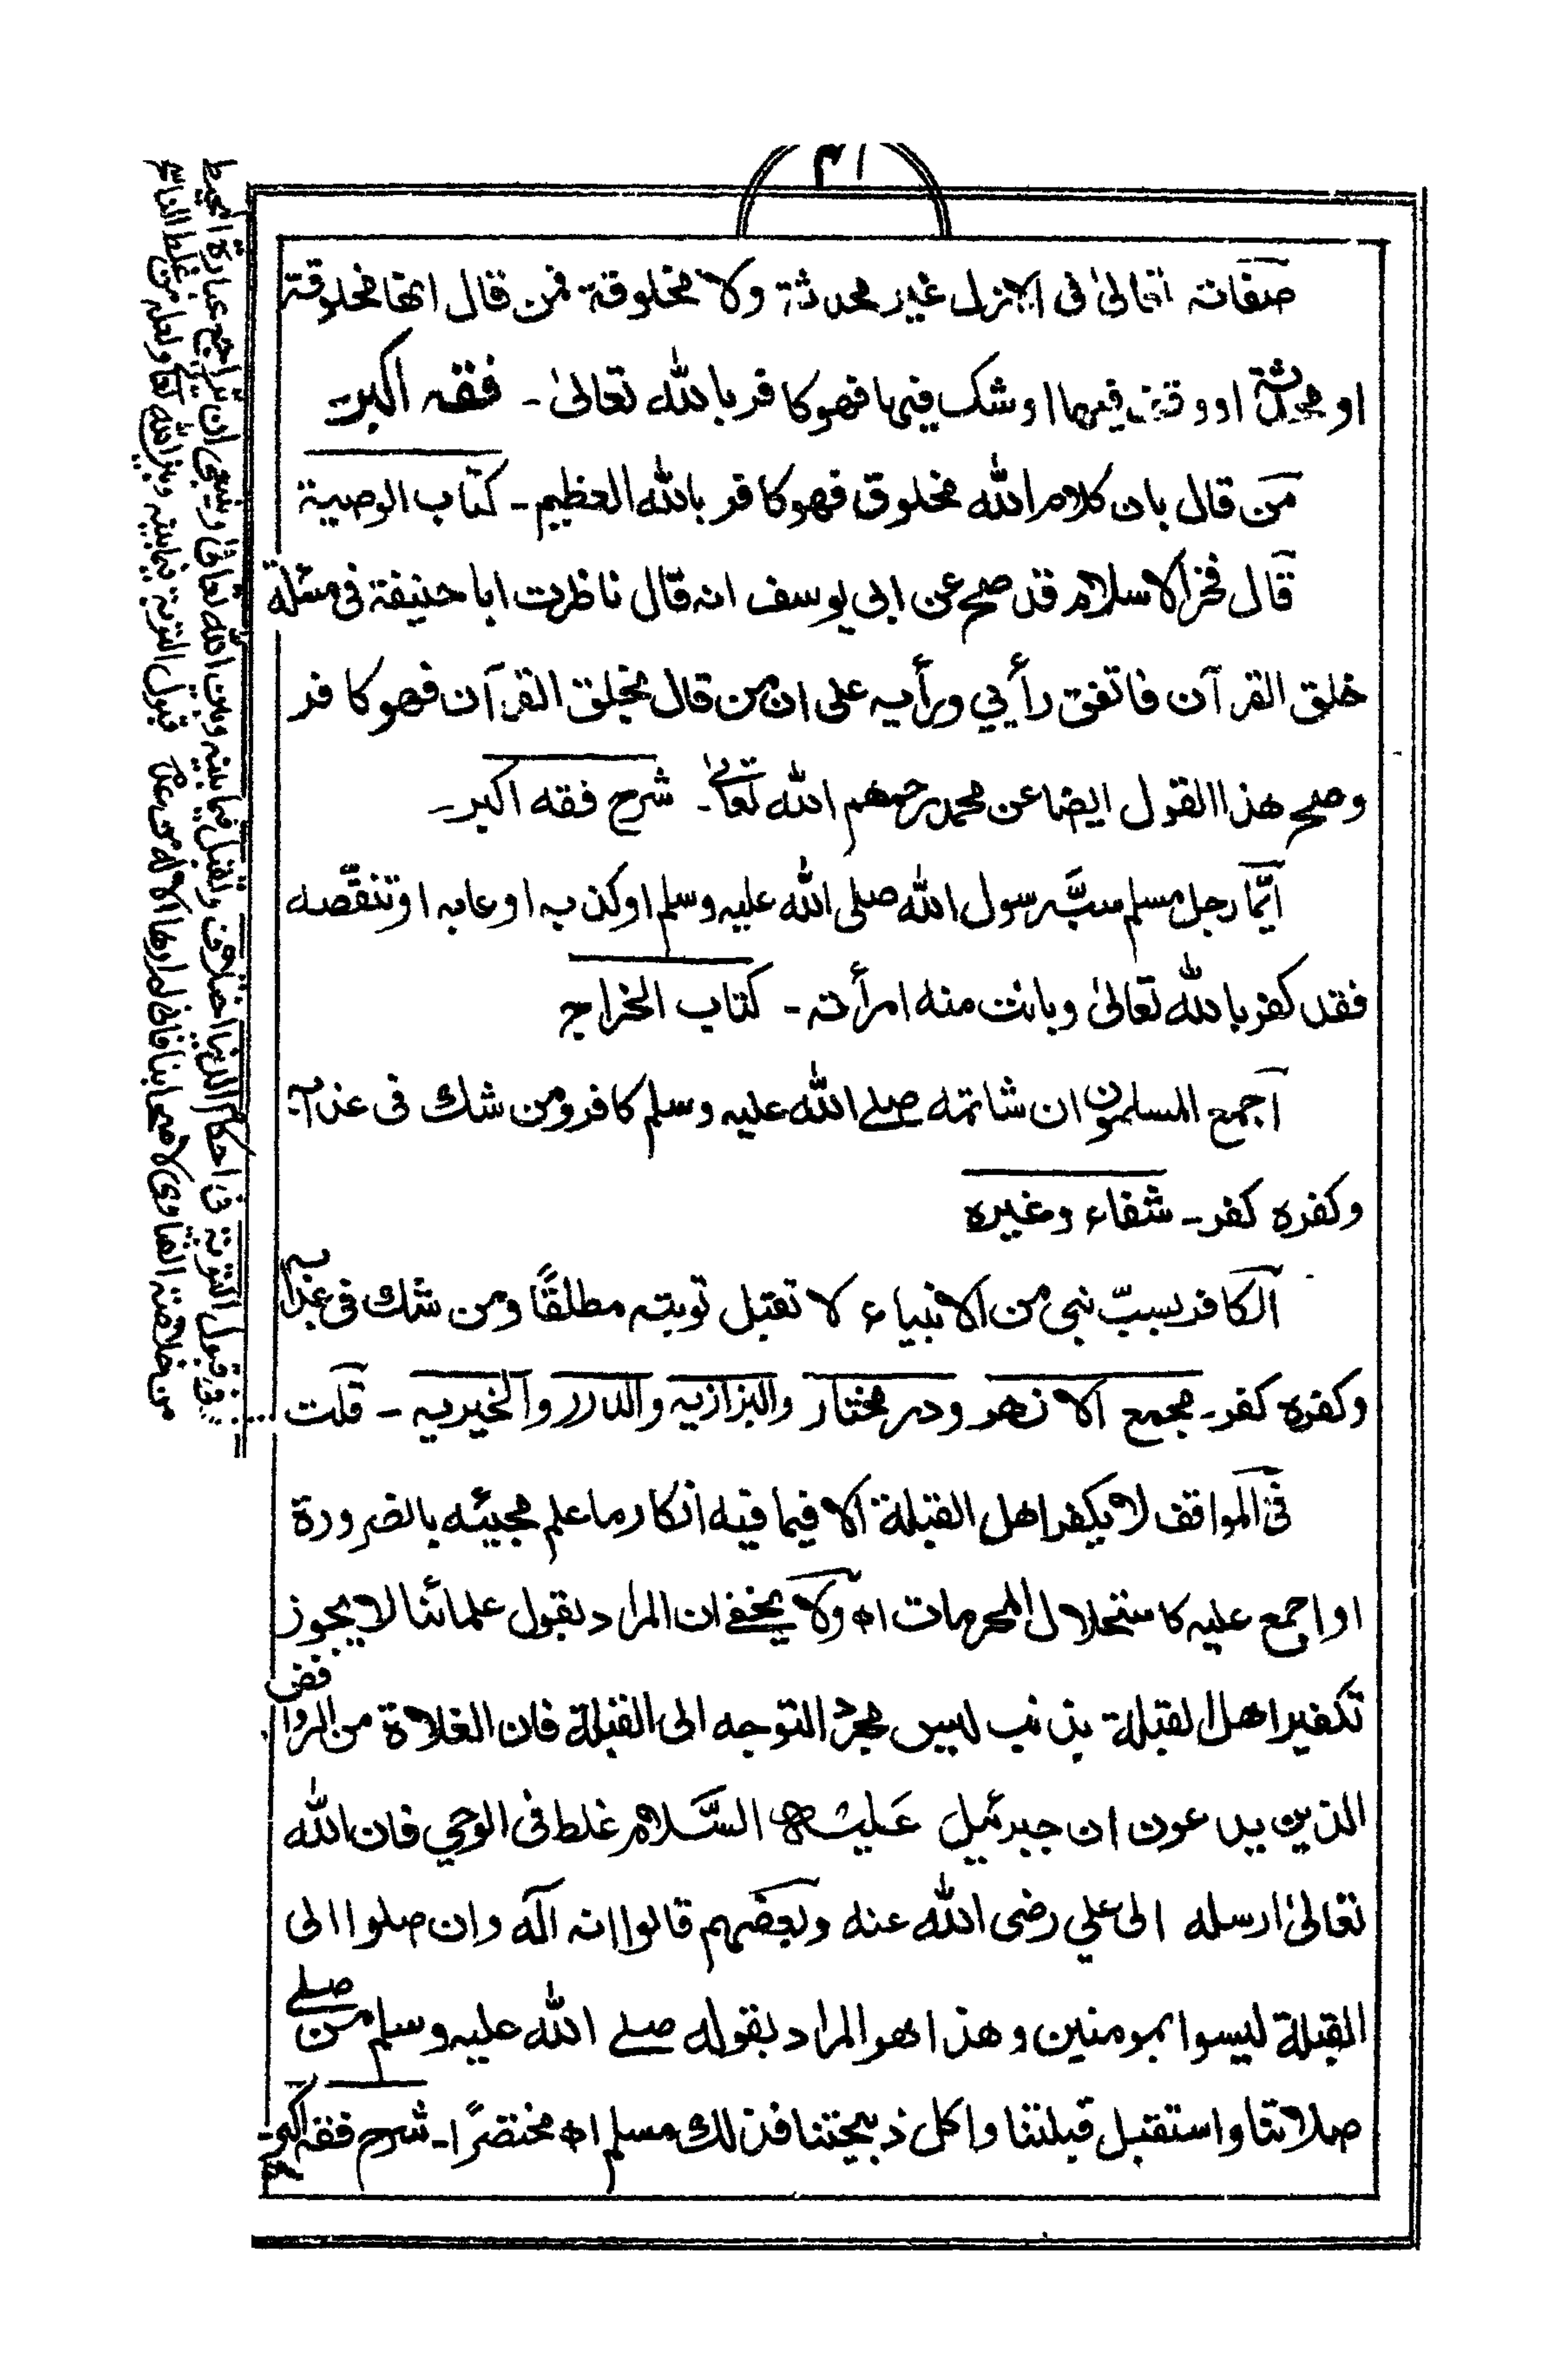 صفاته تعالىٰ فى الازل غير محدثة ولا مخلوقة فمن قال انها مخلوقة
او محدثة او وقف فيها او شك فيها فهو كافر بالله تعالىٰ ـ فقه اكبر ـ
من قال بان كلام الله مخلوق فهو كافر بالله العظيم ـ كتاب الوصية
قال فخر الاسلام قد صح عن ابي يوسف انه قال ناظرت ابا حنيفة فى مسئلة
خلق القرآن فاتفق رأيي ورأيه على ان من قال بخلق القرآن فهو كافر
وصح هذا القول ايضا عن محمد رحمهم الله تعالىٰ ـ شرح فقه اكبر ـ
ايّما رجل مسلم سبّ رسول الله صلى الله عليه وسلم او كذبه او عابه او تنقّصه
فقد كفر بالله تعالىٰ وبانت منه امرأته ـ كتاب الخراج
اجمع المسلمون ان شاتمه صلے الله عليه وسلم كافر ومن شك فى عذابه
وكفره كفر ـ شفاء وغيره
الكافر بسبّ نبى من الانبياء لا تقبل توبته مطلقًا ومن شك فى عذابه
وكفره كفر ـ مجمع الانهر ودر مختار والبزازيه والدرر والخيريه ـ قلت
فى المواقف لا يكفر اهل القبلة الا فيما فيه انكار ما علم مجيئه بالضرورة
او اجمع عليه كاستحلال المحرمات اھ ولا يخفے ان المراد بقول علمائنا لا يجوز
تكفير اهل القبلة بذنب ليس مجرد التوجه الى القبلة فان الغلاة من الروافض
الذين يدعون ان جبرئيل عليه السَّلام غلط فى الوحي فان الله
تعالىٰ ارسله الى علي رضى الله عنه وبعضهم قالوا انه اله وان صلوا الى
القبلة ليسوا بمومنين وهذا هو المراد بقوله صلے الله عليه وسلم من صلے
صلاتنا واستقبل قبلتنا واكل ذبيحتنا فذلك مسلم اھ مختصرًا ـ شرح فقه اكبر ـ
فى قبول التوبة فى احكام الدنيا اختلاف وتقبل فيما بينه وبين الله تعالى وينبغى ان تراجع عبارة المحيط